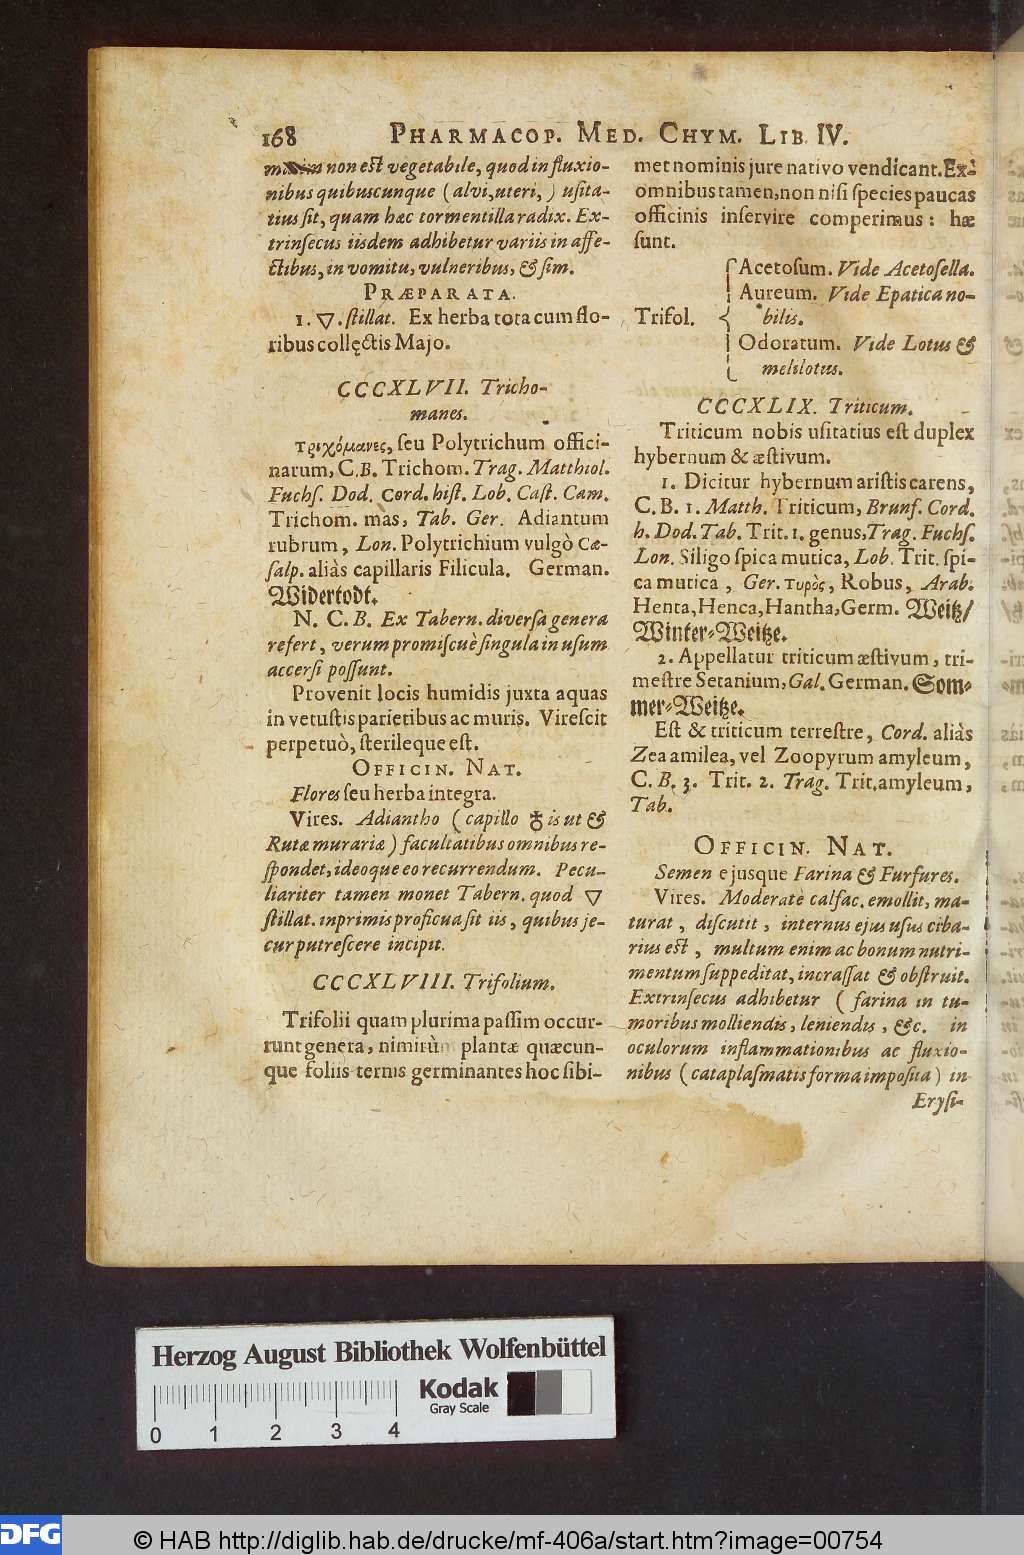 168 PHARMACOP. MED. CHYM. LIB. IV.
non est vegetabile, quod in fluxio-
nibus quibuscunque (alvi, uteri, ) usita-
tius sit, quam hæc tormentilla radix. Ex-
trinsecus iisdem adhibetur variis in affe-
ctibus, in vomitu, vulneribus, & sim.
PRÆPARATA.
1. 🜄. stillat. Ex herba tota cum flo-
ribus collęctis Majo.
CCCXLVII. Tricho-
manes.
τριχόμανες, seu Polytrichum offici-
narum, C.B. Trichom. Trag. Matthiol.
Fuchs. Dod. Cord. hist. Lob. Cast. Cam.
Trichom. mas, Tab. Ger. Adiantum
rubrum, Lon. Polytrichium vulgò Cæ-
salp. aliàs capillaris Filicula. German.
Widertodt.
N. C. B. Ex Tabern. diversa genera
refert, verum promiscuè singula in usum
accersi possunt.
Provenit locis humidis juxta aquas
in vetustis parietibus ac muris. Virescit
perpetuò, sterileque est.
OFFICIN. NAT.
Flores seu herba integra.
Vires. Adiantho (capillo ♁ is ut &
Rutæ murariæ) facultatibus omnibus re-
spondet, ideoque eo recurrendum. Pecu-
liariter tamen monet Tabern. quod 🜄
stillat. inprimis proficua sit iis, quibus je-
cur putrescere incipit.
CCCXLVIII. Trifolium.
Trifolii quam plurima passim occur-
runt genera, nimirùm plantæ quæcun-
que foliis ternis germinantes hoc sibi-
met nominis jure nativo vendicant. Ex
omnibus tamen, non nisi species paucas
officinis inservire comperimus: hæ
sunt.
Acetosum. Vide Acetosella.
Aureum. Vide Epatica no-
Trifol. { bilis.
Odoratum. Vide Lotus &
melilotus.
CCCXLIX. Triticum.
Triticum nobis usitatius est duplex
hybernum & æstivum.
1. Dicitur hybernum aristis carens,
C. B. 1. Matth. Triticum, Brunf. Cord.
h. Dod. Tab. Trit. 1. genus, Trag. Fuchs.
Lon. Siligo spica mutica, Lob. Trit. spi-
ca mutica, Ger. τυρὸς, Robus, Arab.
Henta, Henca, Hantha, Germ. Weitz/
Winter-Weitze.
2. Appellatur triticum æstivum, tri-
mestre Setanium, Gal. German. Som-
mer-Weitze.
Est & triticum terrestre, Cord. aliàs
Zea amilea, vel Zoopyrum amyleum,
C. B. 3. Trit. 2. Trag. Trit. amyleum,
Tab.
OFFICIN. NAT.
Semen ejusque Farina & Furfures.
Vires. Moderatè calfac. emollit, ma-
turat, discutit, internus ejus usus ciba-
rius est, multum enim ac bonum nutri-
mentum suppeditat, incrassat & obstruit.
Extrinsecus adhibetur (farina in tu-
moribus molliendis, leniendis, &c. in
oculorum inflammationibus ac fluxio-
nibus (cataplasmatis forma imposita) in
Erysi-
Herzog August Bibliothek Wolfenbüttel
Kodak
Gray Scale
0 1 2 3 4
DFG
© HAB http://diglib.hab.de/drucke/mf-406a/start.htm?image=00754